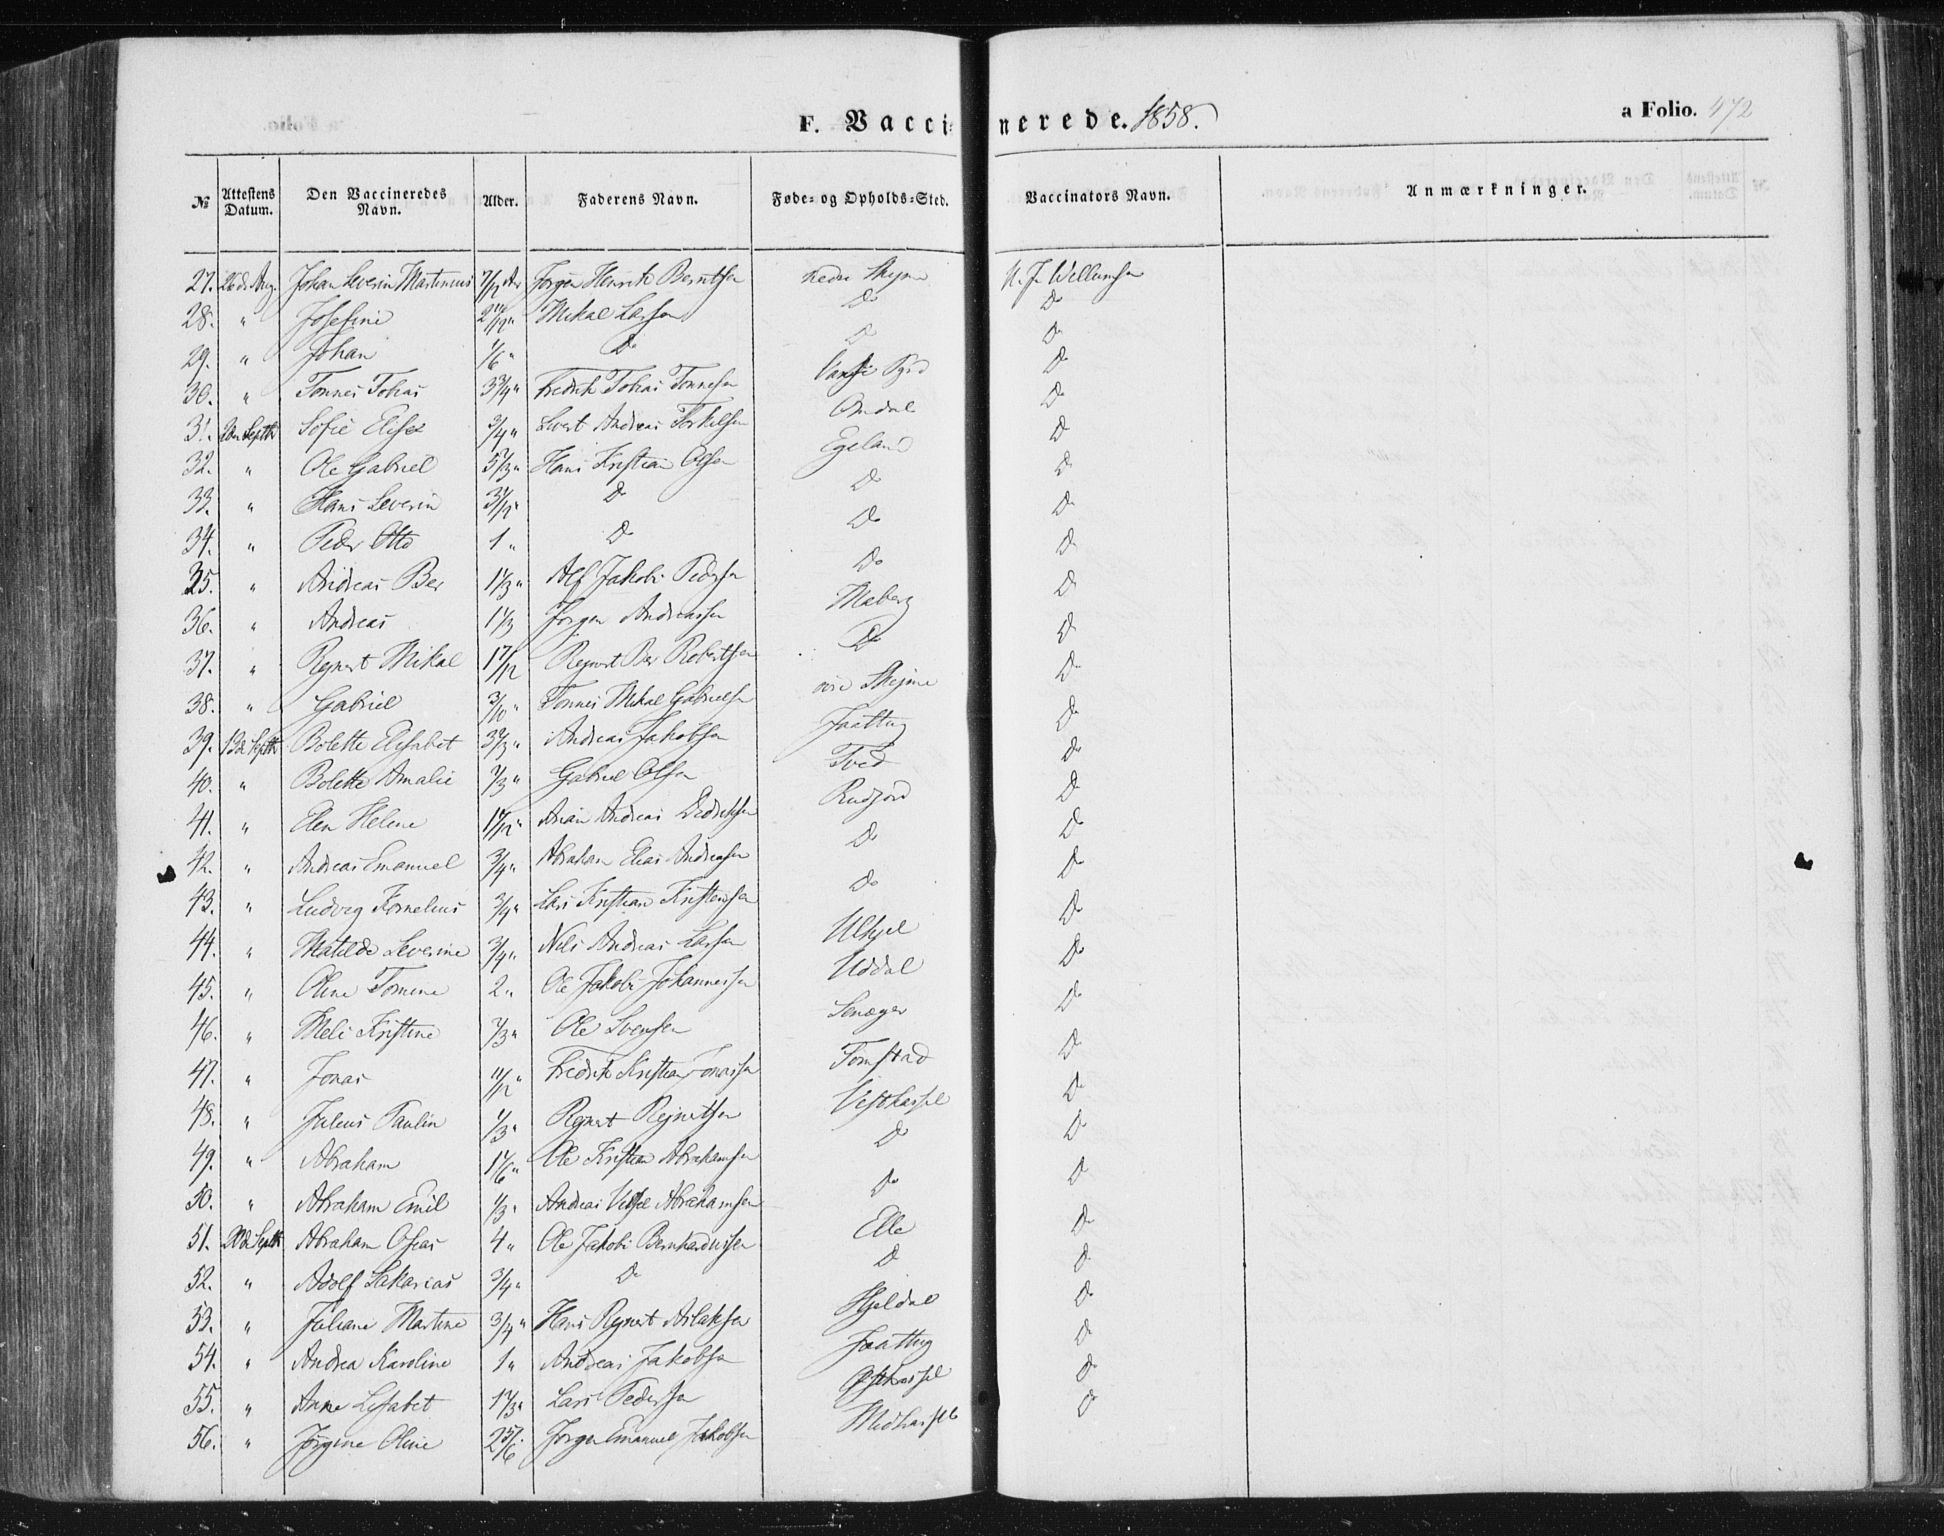 F. Vaccinerede. 1858. a Folio. 472
№ Attestens Datum. Den Vaccineredes Navn. Alder. Faderens Navn. Føde- og Opholds-Sted. Vaccinators Navn. Anmærkninger.
27. 26de Aug. Johan Severin Martinius 7/12 Aar Jørgen Henrik Berntsen nedre Skejme Willumsen
28. " Josefine 2 11/12 " Mikal Larsen Do Do
29. " Johan 1/6 " Do Do Do
30. " Tønnes Tobias 3 3/4 " Fredrik Tobias Tønnesen Vansø Do
31. Septbr Sofie Elise 3/4 " Andreas Torkelsen Omdal Do
32. " Ole Gabriel 5 1/3 " Hans Kristian Olsen Egeland Do
33. " Hans Severin 3 1/12 " Do Do Do
34. " Peder Otto 1 " Do Do Do
35. " Andreas Ber 1 1/3 " Alf Jakob Pedersen Do Do
36. " Andreas 1 1/3 Jørgen Andreassen Maberg Do
37. " Regnert Mikal 1 7/12 Regnert Ber Robertsen Do Do
38. " Gabriel 3/10 " Tønnes Mikal Gabrielsen øvre Skejme Do
39. 13de Septbr Bolette Elisabet 3 2/3 " Andreas Jakobsen Jaattug Do
40. " Bolette Amalie 1/3 " Gabriel Olsen Tved Do
41. " Elen Helene 1 1/12 " Arian Andreas Didriksen Rudjord Do
42. " Andreas Emanuel 3/4 " Abraham Elias Andreasen Do Do
43. " Ludvig Kornelius 3/4 " Lars Kristian Kristensen Do Do
44. " Matilde Severine 3/4 " Nils Andreas Larsen Ulhjel Do
45. " Oline Tomine 2 " Ole Jakob Johannessen Uddal Do
46. " Meli Kristine 1/3 " Ole Svensen Do
47. " Jonas 11/12 " Fredrik Kristian Jonassen Tomstad Do
48. " Julius Paulin 1/3 " Regnert Regnertsen Vesthassel Do
49. " Abraham 1 1/6 " Ole Kristian Abrahamsen Do Do
50. " Abraham Emil 1/3 " Andreas Abrahamsen Do Do
51. 20de Septbr Abraham Oseas 4 " Ole Jakob Bernhardussen Elle Do
52. " Adolf Sakarias 3/4 " Do Do Do
53. " Juliane Martine 3/4 " Hans Regnert Aslaksen Hjeldal Do
54. " Andrea Karoline 1 " Andreas Jakobsen Jaattug Do
55. " Anne Lisabet 1 1/3 " Lars Pedersen Østhassel Do
56. " Jørgine Oline 2 5/6 Jørgen Emanuel Jakobsen Midhassel Do